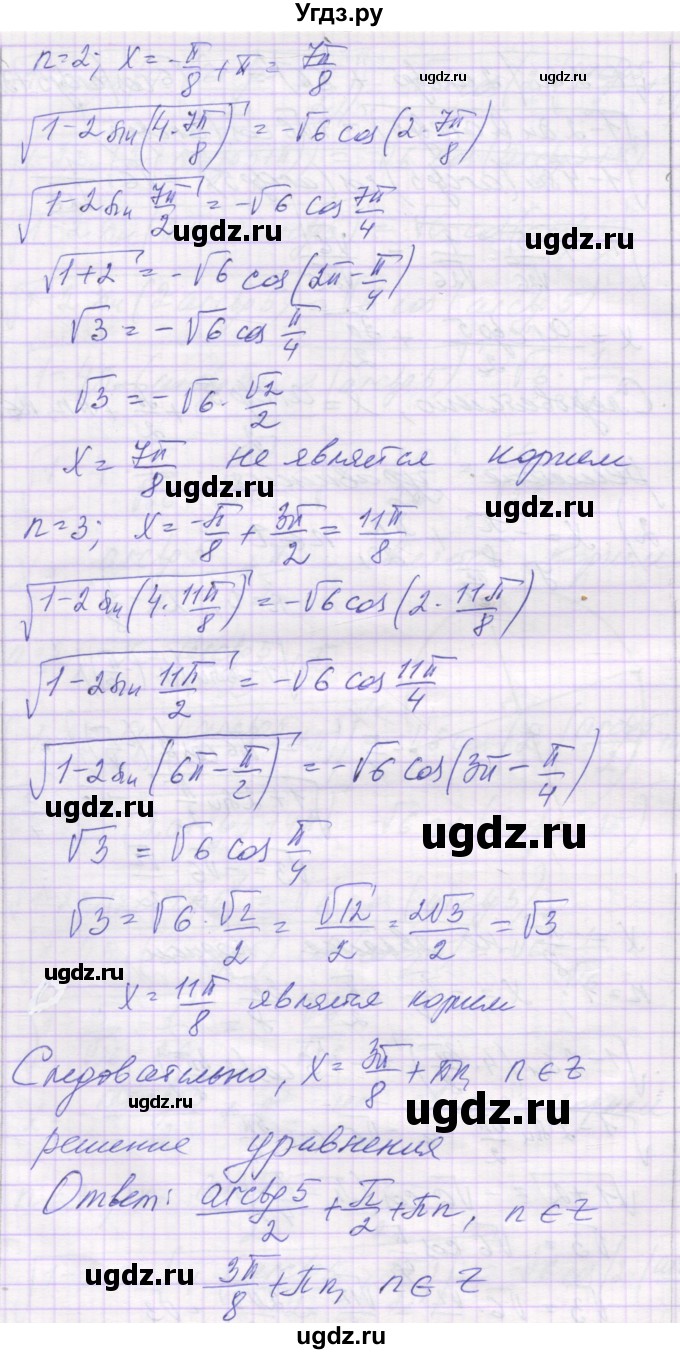 Угдз.ру
n=2; x = -π/8 + π = 7π/8
√(1-2 sin(4·7π/8)) = -√6 cos(2·7π/8)
√(1-2 sin 7π/2) = -√6 cos 7π/4
ugdz.ru
ugdz.ru
ugdz.ru
√(1+2) = -√6 cos(2π - π/4)
√3 = -√6 cos π/4
ugdz.ru
√3 = -√6 · √2/2
x = 7π/8 не является корнем
ugdz.ru
ugdz.ru
n=3; x = -π/8 + 3π/2 = 11π/8
√(1-2 sin(4·11π/8)) = -√6 cos(2·11π/8)
√(1-2 sin 11π/2) = -√6 cos 11π/4
√(1-2 sin(6π - π/2)) = -√6 cos(3π - π/4)
ugdz.ru
ugdz.ru
√3 = √6 cos π/4
√3 = √6 · √2/2 = √12/2 = 2√3/2 = √3
ugdz.ru
x = 11π/8 является корнем
ugdz.ru
Следовательно, x = 3π/8 + πn, n ∈ Z
ugdz.ru
ugdz.ru
решение уравнения
Ответ: arctg 5/2 + π/2 + πn, n ∈ Z
ugdz.ru
3π/8 + πn, n ∈ Z
ugdz.ru
ugdz.ru